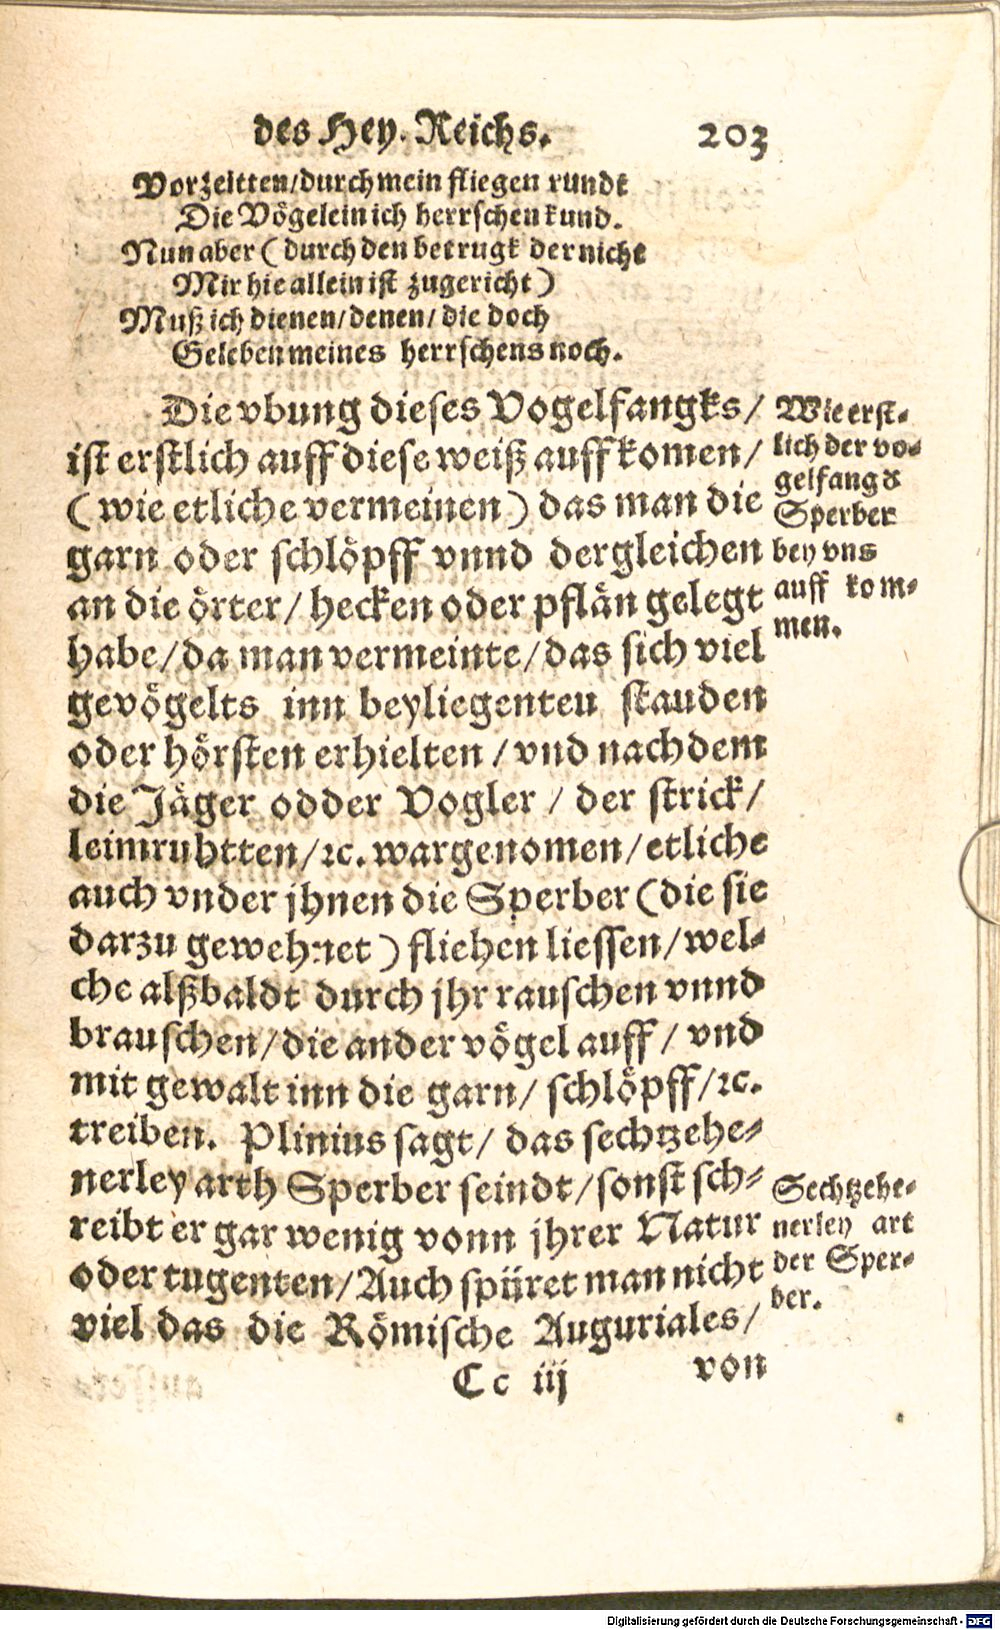 des Hey. Reichs. 203
Vorzeitten/durch mein fliegen rundt
Die Vögelein ich herrschen kund.
Nun aber (durch den betrugk der nicht
Mir hie allein ist zugericht)
Muß ich dienen/denen/die doch
Geleben meines herrschens noch.
Die vbung dieses Vogelfangks/
ist erstlich auff diese weiß auffkomen/
(wie etliche vermeinen) das man die
garn oder schlöpff vnnd dergleichen
an die örter/hecken oder pflän gelegt
habe/da man vermeinte/das sich viel
gevögelts inn beyliegenteu stauden
oder hörsten erhielten/vnd nachdem
die Jäger odder Vogler/der strick/
leimruhtten/ꝛc. wargenomen/etliche
auch vnder jhnen die Sperber (die sie
darzu gewehnet) fliehen liessen/wel-
che alßbaldt durch jhr rauschen vnnd
brauschen/die ander vögel auff/vnd
mit gewalt inn die garn/schlöpff/ꝛc.
treiben. Plinius sagt/das sechtzehe-
nerley arth Sperber seindt/sonst sch-
reibt er gar wenig vonn jhrer Natur
oder tugenten/Auch spüret man nicht
viel das die Römische Auguriales/
Cc iij von
Wie erst-
lich der vo-
gelfang d
Sperber
bey vns
auff kom-
men.
Sechtzehe-
nerley art
der Sper-
ber.
Digitalisierung gefördert durch die Deutsche Forschungsgemeinschaft - DFG